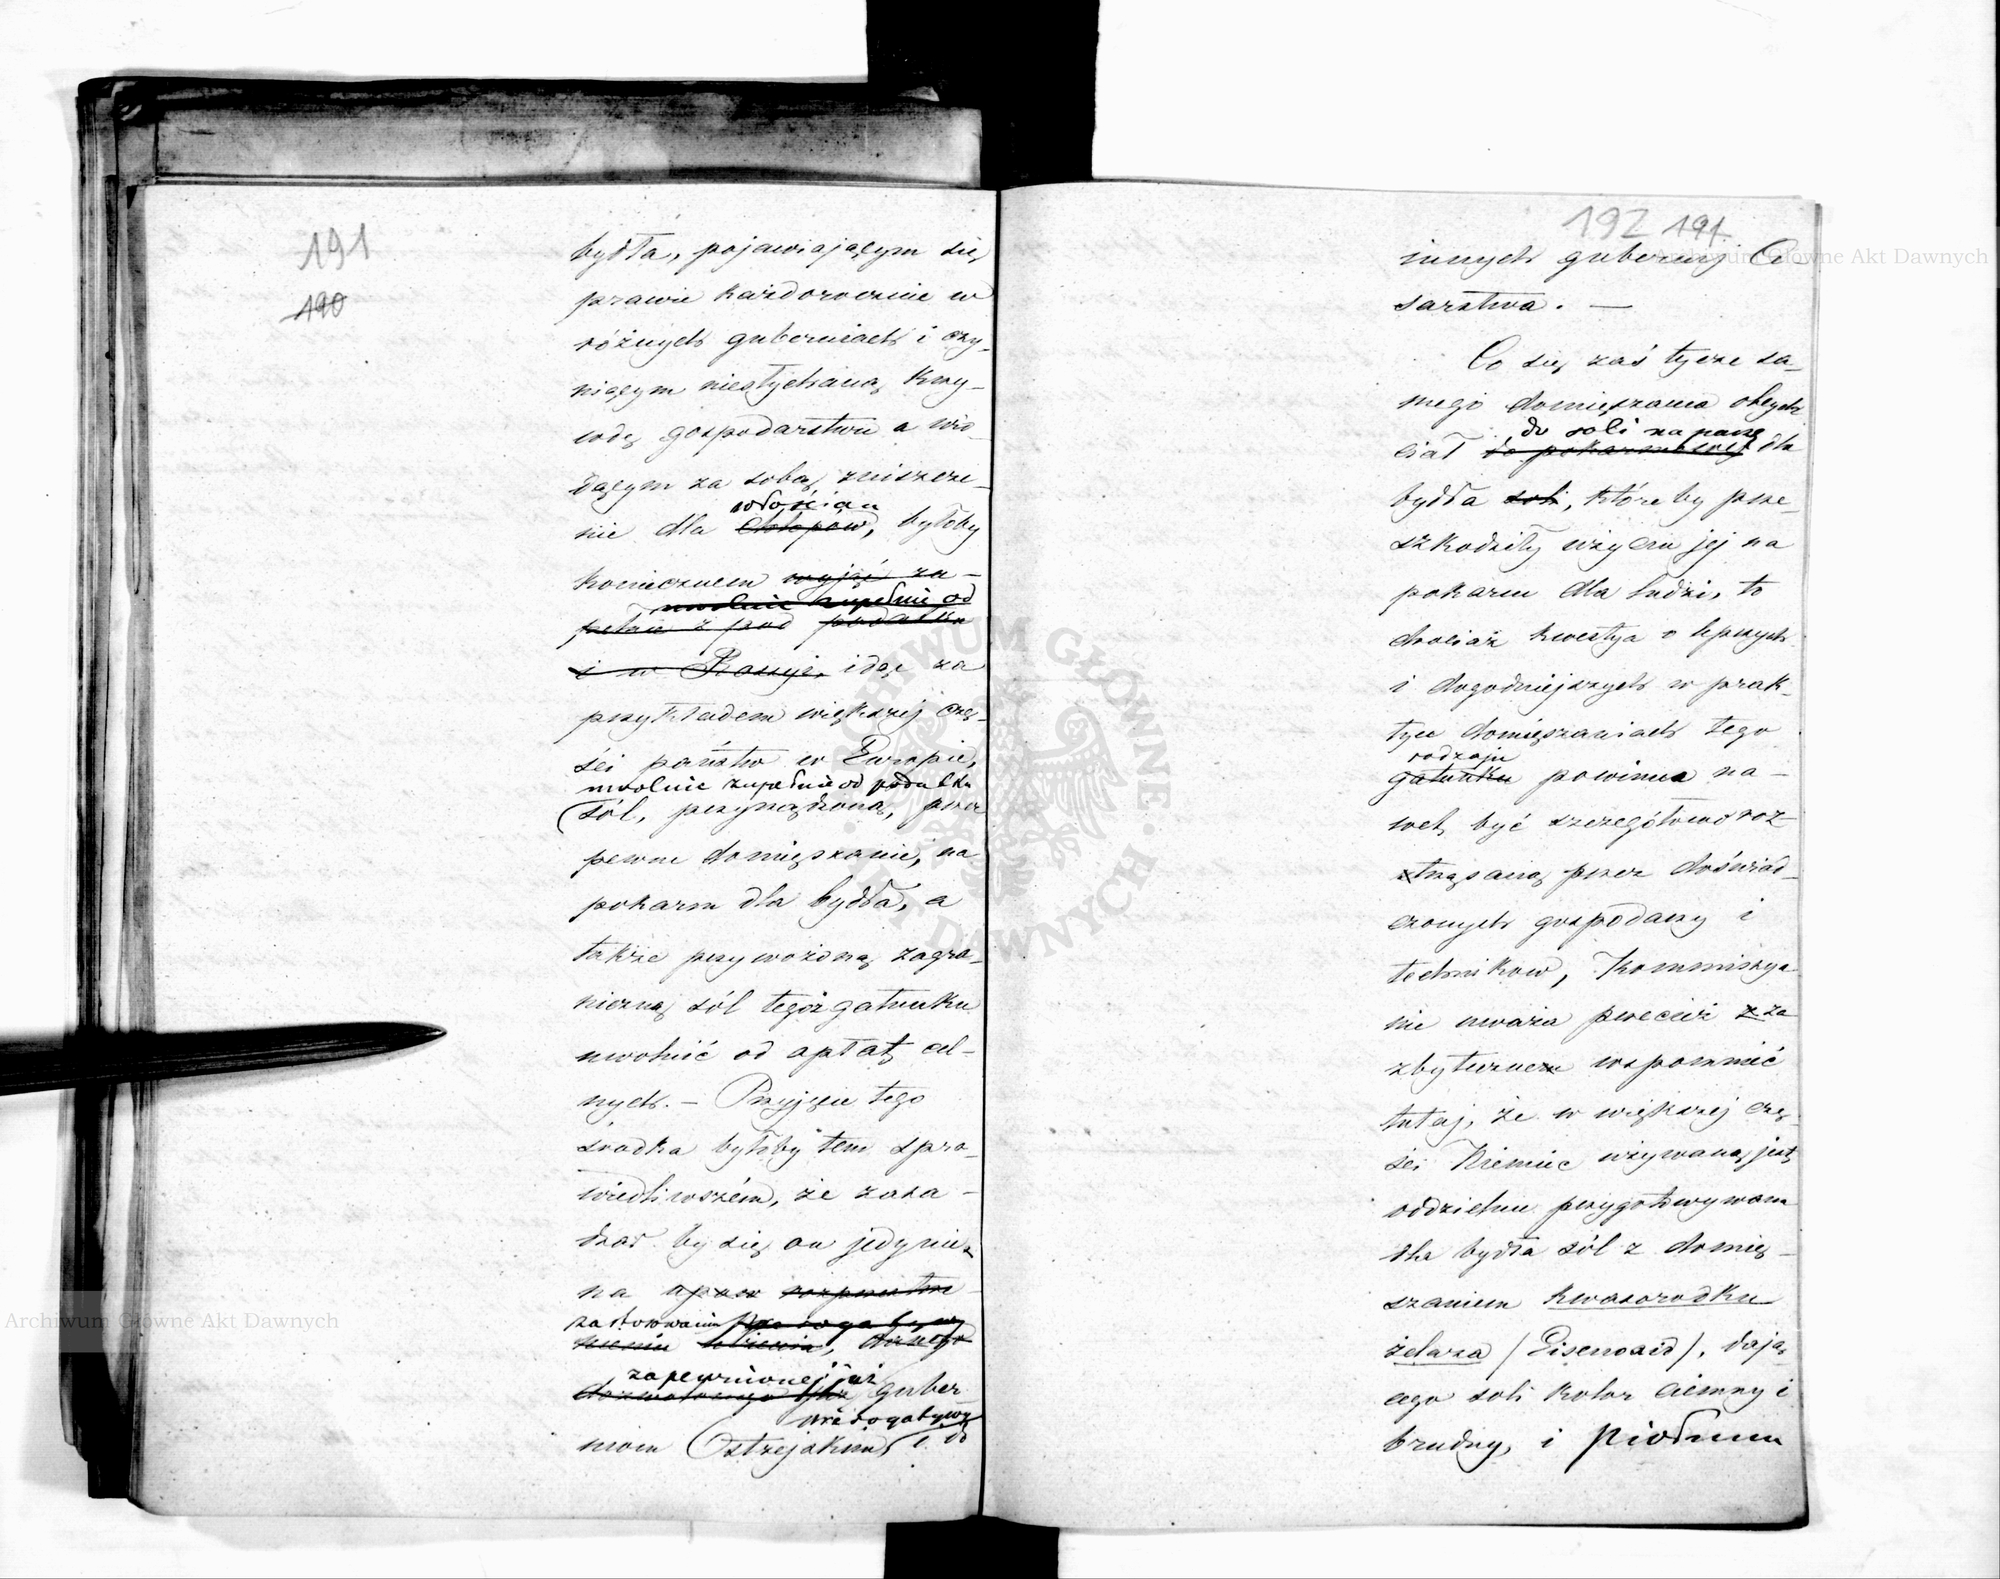 191
190
bydła, pojawiającym się
prawie każdorocznie w
różnych guberniach i czy-
niącym niesłychaną krzy-
wdę gospodarstwu a wio-
dącym za sobą zniszcze-
włościan
nie dla chłopów, byłoby
koniecznem wyjąć za-
uwolnić zupełnie od
pełnie z pod podatku
i w Rossyi, idąc za
przykładem większéj czę-
ści państw w Europie,
uwolnić zupełnie od podatku
(sól, przyrządzoną, przez
pewne domięszanie, na
pokarm dla bydła, a
także przywożoną zagra-
niczną sól tegoż gatunku
uwolnić od opłat cel-
nych. — Przyjęcie tego
środka byłoby tem spra-
wiedliwszém, że zasa-
dzał by się on jedynie
na
zastosowaniu
zapewnionej już
guber
prerogatywy
niom Ostzejskim i do
192 191
innych gubernij Ce-
sarstwa. —
Co się zaś tycze sa-
mego domięszania obcych
do soli na paszę
ciał do pokarmowej dla
bydła soli, któreby prze-
szkodziły użyciu jej na
pokarm dla ludzi, to
chociaż kwestya o lepszych
i dogodniejszych w prak-
tyce domięszaniach tego
rodzaju
gatunku powinna na-
wet być szczegółowo roz-
trząsaną przez doświad-
czonych gospodarzy i
techników, Kommissya
nie uważa przecież za
zbyteczne wspomnieć
tutaj, że w większej czę-
ści Niemiec używaną jest
oddzielnie przygotowywana
dla bydła sól z domię-
szaniem kwasorodku
żelaza (Eisenoxid), dają-
cego soli kolor ciemny i
brudny, i piołunu
Archiwum Główne Akt Dawnych
Archiwum Główne Akt Dawnych
ARCHIWUM GŁÓWNE AKT DAWNYCH